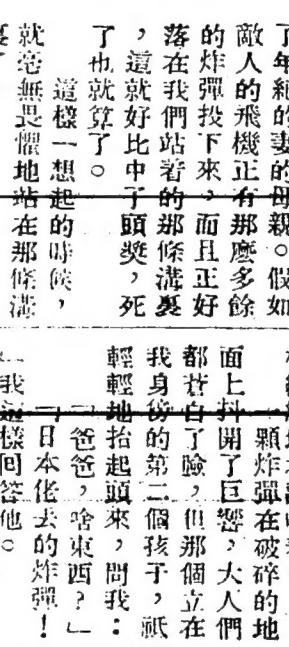 了年紀的妻的母親。假如
敵人的飛機正有那麽多餘
的炸彈投下來,而且正好
落在我們站着的那條溝裏
,這就好比中了頭獎,死
了也就算了。
這樣一想起的時候,
就毫無畏懼地站在那條溝
一顆炸彈在破碎的地
面上抖開了巨響,大人們
都蒼白了臉,但那個立在
我身傍的第二個孩子,祇
輕輕地抬起頭來,問我:
「爸爸,啥東西?」
「日本佬去的炸彈!
」我這樣回答他。